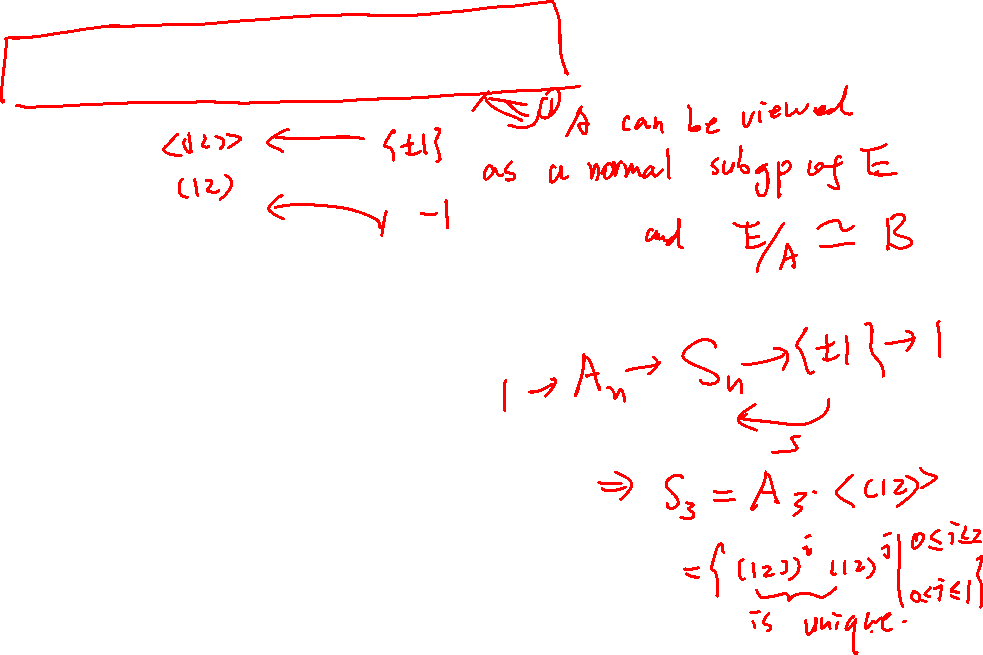 <(12)> ← {±1}
(12) ← -1
A can be viewed
as a normal subgp of E
and E/A ≃ B
1 → Aₙ → Sₙ → {±1} → 1
s
⇒ S₃ = A₃· <(12)>
= { (123)ⁱ (12)ʲ | 0≤i≤2
0≤j≤1 }
is unique.